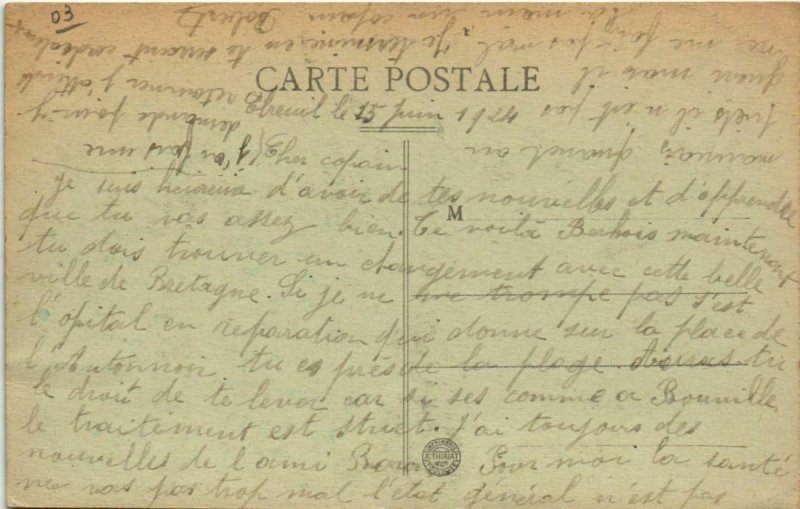 03
CARTE POSTALE
Ebreuil le 15 juin 1924
Cher copain
Je suis heureux d'avoir de tes nouvelles et d'apprendre
que tu vas assez bien. Te voilà maintenant
tu dois trouver un changement avec cette belle
ville de Bretagne. Si je ne me trompe pas s'est
l'opital en reparation qui donne sur la place de
tu es près de la plage. tu
le droit de te lever car si ses comme a
le traitement est strict. J'ai toujours des
nouvelles de l'ami Pour moi la santé
ne vas pas trop mal l'état général n'est pas
mauvais quand au
il n'est pas
mais il
ne me fait pas mal. Je termine en te serrant cordialement
la main ton copain Robert
J'ai fais une
demande pour y
retourner j'attends
M
IMPRIMERIE
A. THIRIAT
TOULOUSE